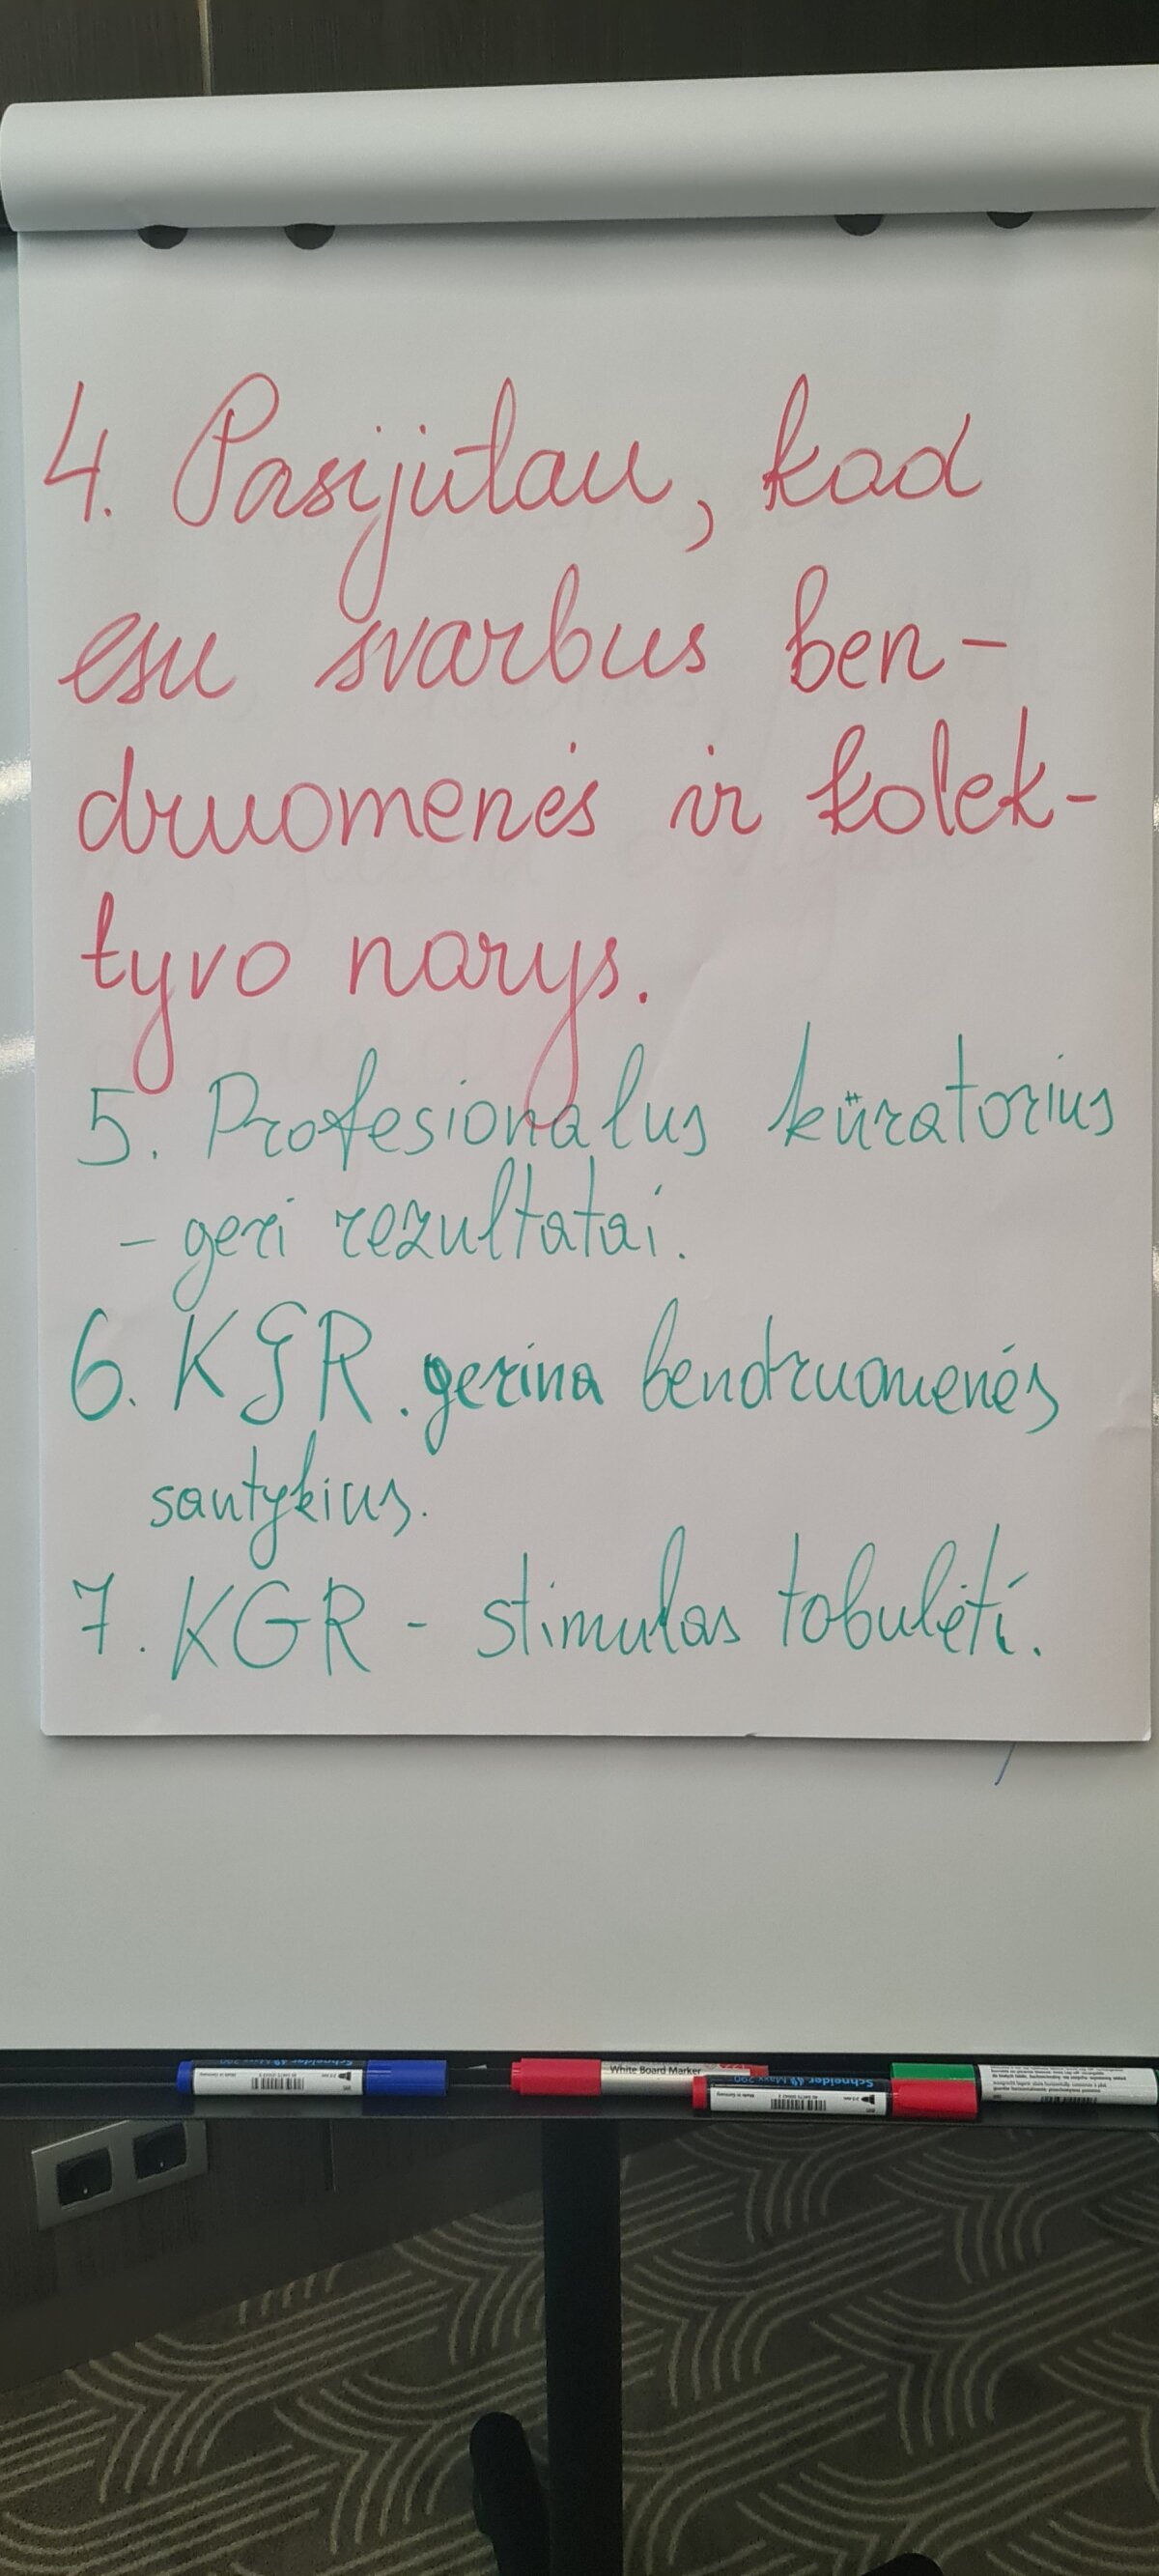 4. Pasijutau, kad
esu svarbus ben-
druomenės ir kolek-
tyvo narys.
5. Profesionalus kūratorius
- geri rezultatai.
6. KGR. gerina bendruomenės
santykius.
7. KGR - stimulas tobulėti.
Schneider Maxx 290
White Board Marker
Schneider Maxx 290